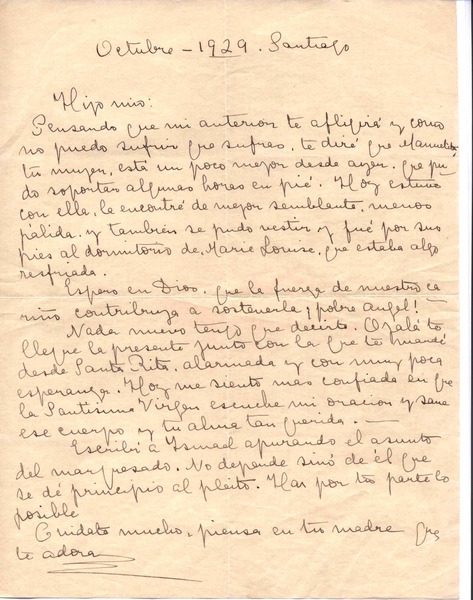 Octubre - 1929. Santiago
Hijo mío:
Pensando que mi anterior te afligirá y como
no puedo sufrir que sufras, te diré que Manuelita,
tu mujer, está un poco mejor desde ayer, que pu-
do soportar algunas horas en pié. Hoy estuve
con ella, la encontré de mejor semblante, menos
pálida, y también se pudo vestir y fué por sus
pies al dormitorio de Marie Louise, que estaba algo
resfriada.
Espero en Dios, que la fuerza de nuestro ca
riño contribuya a sostenerla ¡pobre angel! —
Nada nuevo tengo que decirte. Ojalá te
llegue la presente junto con la que te mandé
desde Santa Rita, alarmada y con muy poca
esperanza. Hoy me siento mas confiada en que
la Santísima Virgen escuche mi oracion y sane
ese cuerpo y tu alma tan querida. —
Escribí a Ismael apurando el asunto
del marquesado. No depende sinó de él que
se dé principio al pleito. Haz por tu parte lo
posible
Cuidate mucho, piensa en tu madre que
te adora